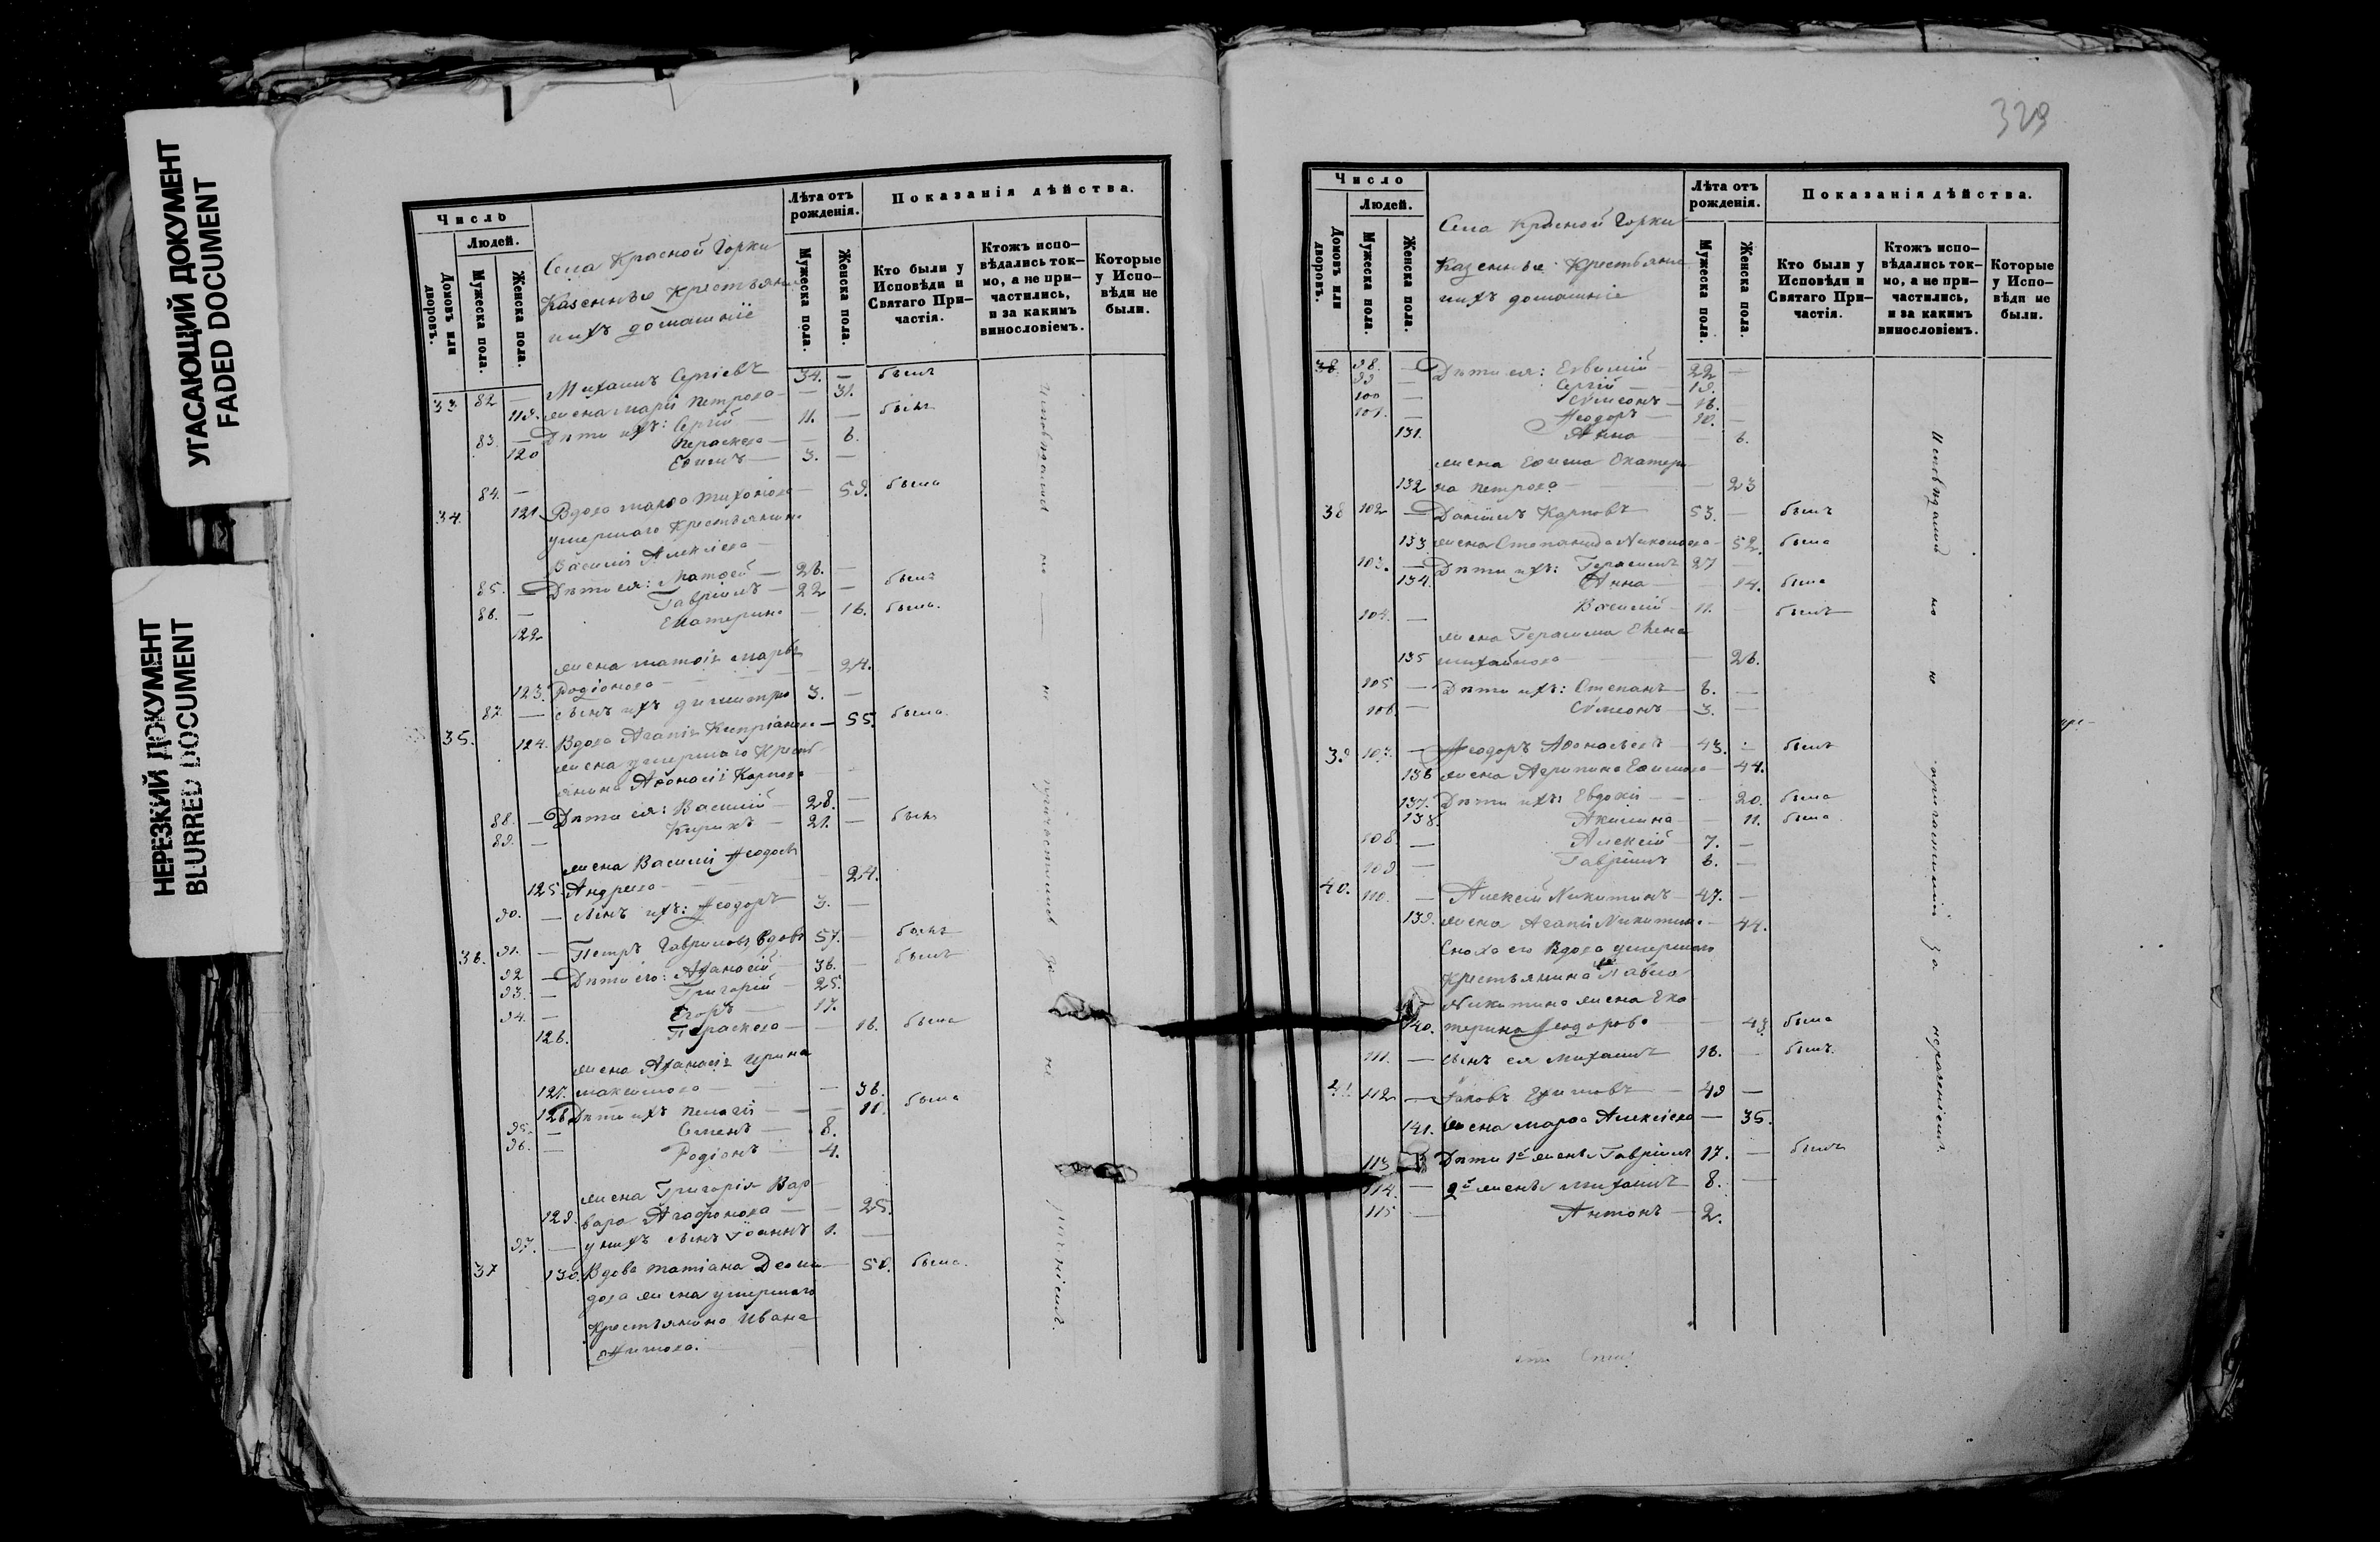 УГАСАЮЩИЙ ДОКУМЕНТ
FADED DOCUMENT
НЕРЕЗКИЙ ДОКУМЕНТ
BLURRED DOCUMENT
Число
Людей.
Домовъ или дворовъ.
Мужеска пола.
Женска пола.
Села Красной Горки
Казенные Крестьяне
ихъ домашніе
Лѣта отъ рожденія.
Мужеска пола.
Женска пола.
Показанія дѣйства.
Кто были у Исповѣди и Святаго Причастія.
Ктожъ исповѣдались токмо, а не причастились, и за какимъ винословіемъ.
Которые у Исповѣди не были.
33. 82 — Михаилъ Сергіевъ 34. — былъ
119. жена Марія Петрова — 31.
83. — Дѣти ихъ: Сергій — 11. — былъ
120 Параскева — — 6.
84. — Ефимъ — 3. —
34. 121 Вдова Марѳа Тихонова — 59. была
умершаго Крестьянина
Василія Алексіева —
85. — Дѣти ея: Матѳей — 26. —
86. — Гавріилъ — 22 — былъ
122 Екатерина — 16. была.
жена Матѳія Марѳа
123. Родіонова — — 24.
87. — сынъ ихъ Димитрій 3. —
35. 124. Вдова Агапія Кипріанова — 55. была.
жена умершаго Кресть-
янина Аѳонасія Карпова
88. — Дѣти ея: Василій — 28. —
89. — Кирикъ — 21. — былъ
жена Василія Ѳеодосія
125. Андреева — — 24.
90. — сынъ ихъ: Ѳеодоръ 3. —
36. 91. — Петръ Гавриловъ вдовъ 57. — былъ
92 — Дѣти его: Аѳанасій — 36. — былъ
93. — Григорій — 25.
94. — Егоръ — 17.
126. Параскева — — 16. была
жена Аѳанасія Ирина
127. Максимова — — 36.
128. Дѣти ихъ Пелагія — — 11. была
95. — Семенъ — 8.
96. — Родіонъ — 4.
жена Григорія Вар-
129. вара Агаѳонова — — 25.
97. — у нихъ сынъ Іоаннъ 1. —
37 130. Вдова Татіана Деоми-
дова жена умершаго
Крестьянина Ивана
Ефимова.
была.
329
Число
Людей.
Домовъ или дворовъ.
Мужеска пола.
Женска пола.
Села Красной Горки
Казенные Крестьяне
ихъ домашніе
Лѣта отъ рожденія.
Мужеска пола.
Женска пола.
Показанія дѣйства.
Кто были у Исповѣди и Святаго Причастія.
Ктожъ исповѣдались токмо, а не причастились, и за какимъ винословіемъ.
Которые у Исповѣди не были.
98. — Дѣти ея: — 22 —
99 — Сергій — 19.
100 — Сѵмеонъ — 16.
101. — Ѳеодоръ — 10. —
131. Анна — — 6.
жена Ефима Екатери-
132 на Петрова — — 23
38 102 — Даніилъ Карповъ 53. — былъ
133 жена Степанида Никонова — 52. была
103. — Дѣти ихъ: Герасимъ 27 —
134. Анна — — 14. была
104. — Василій — 11. — былъ
жена Герасима Елена
135 Михайлова — 26.
105 — Дѣти ихъ: Степанъ — 6. —
106. — Сѵмеонъ — 3. —
39 107. — Ѳеодоръ Аѳонасьевъ — 43. — былъ
136 жена Агрипина Ефимова — 44.
137. Дѣти ихъ: Евдокія — — 20. была
138. Акилина — — 11. была
108. — Алексій — 7. —
109 — Гавріилъ 6. —
40. 110. — Алексій Никитинъ — 47. —
139. жена Агапія Никитина — 44.
Сноха его вдова умершаго
Крестьянина Павла
Никитина жена Ека-
140. терина Ѳеодорова — — 43 была
111. — сынъ ея Михаилъ 16. — былъ.
41 112 — Яковъ Ефимовъ — 49 —
141. жена Марѳа Алексіева — 35.
113 Дѣти 1й жены Гавріилъ 17. — былъ
114. — 2й жены Михаилъ 8. —
115 — Антонъ — 2.